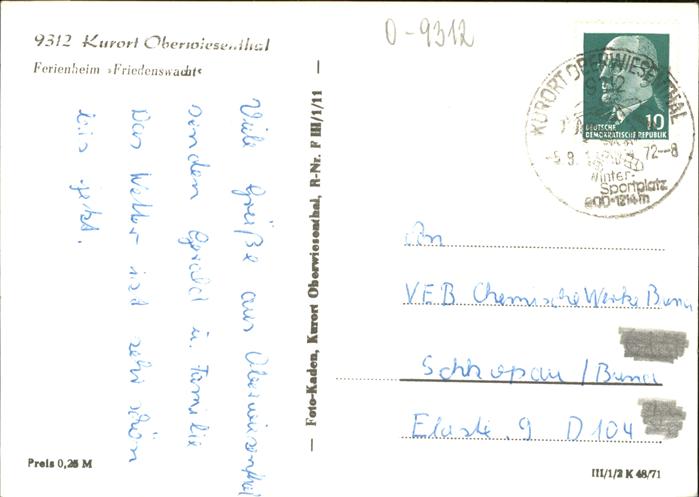 9312 Kurort Oberwiesenthal
Ferienheim »Friedenswacht«
Viele Grüße aus Oberwiesenthal
senden Gerald u. Familie
Das Wetter ist sehr schön
bis jetzt.
Preis 0,25 M
— Foto-Kaden, Kurort Oberwiesenthal, R-Nr. F III/1/11 —
O-9312
10
DEUTSCHE
DEMOKRATISCHE REPUBLIK
KURORT OBERWIESENTHAL
9312
-5.9. 72--8
Winter-
Sportplatz
900-1214m
An
VEB Chemische Werke Buna
Schkopau / Buna
Elaste 9 D 104
III/1/2 K 48/71